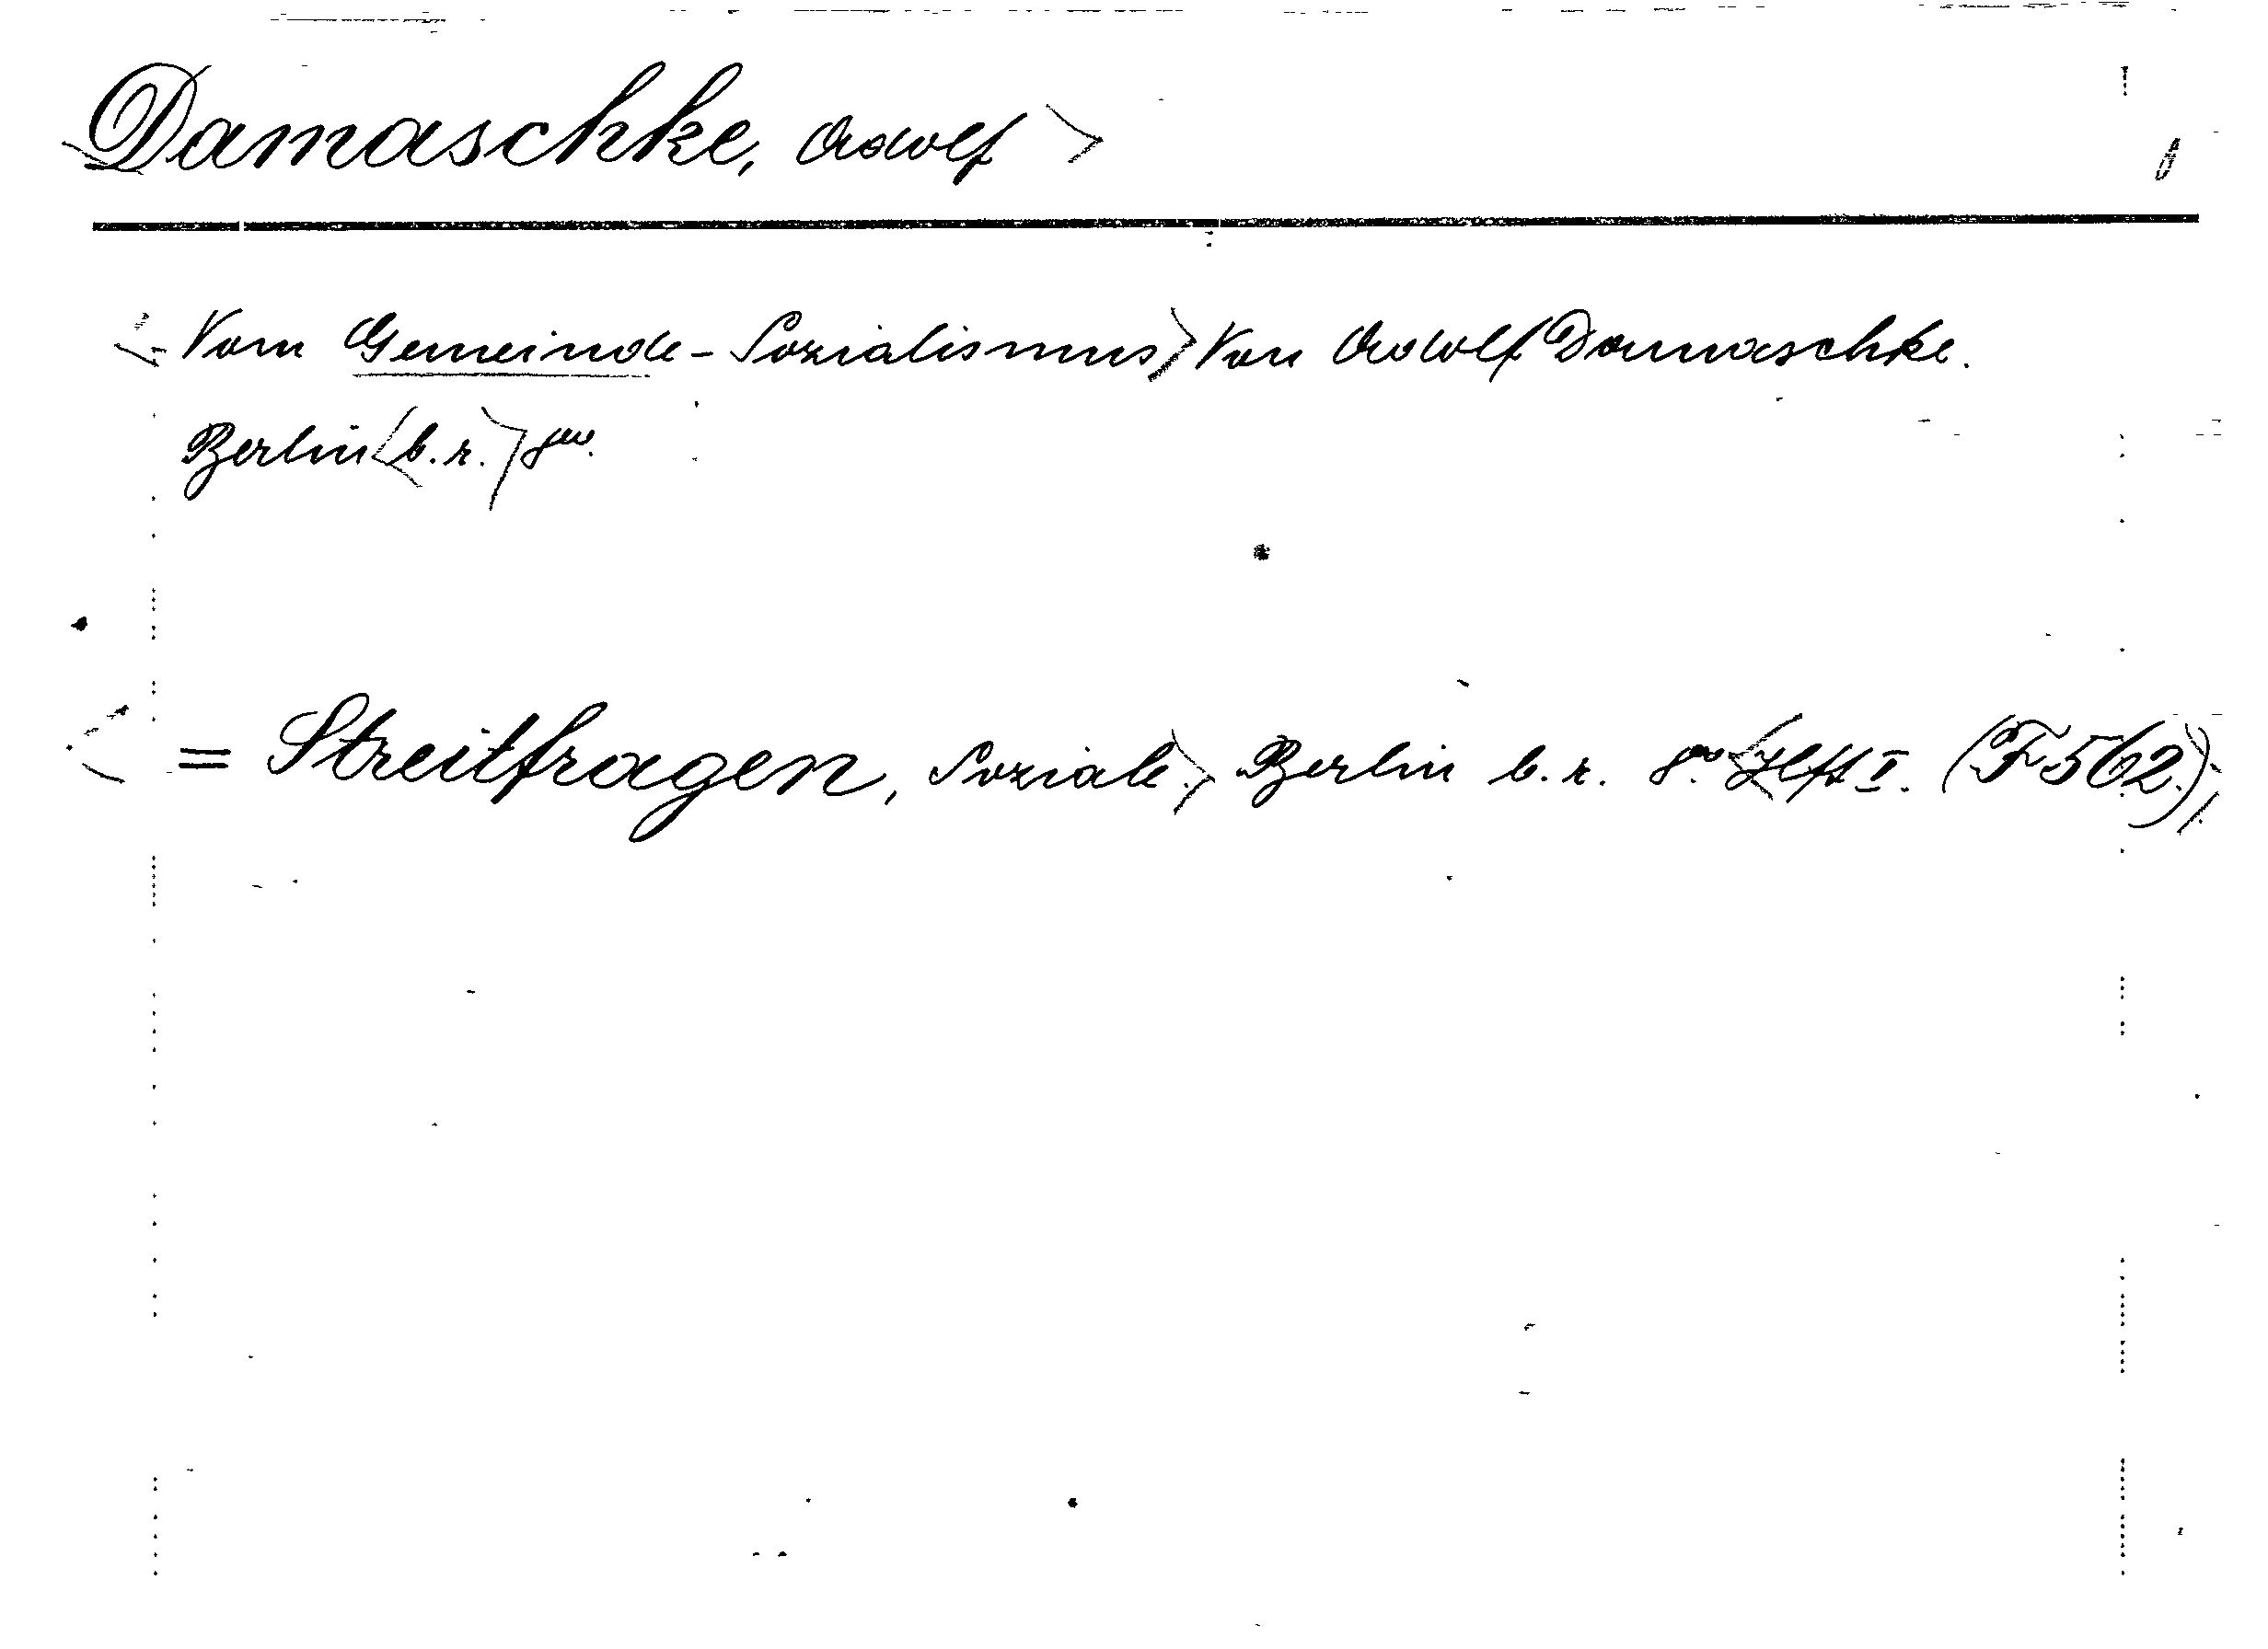 Damaschke, Adolf >
< Vom Gemeinde-Sozialismus > Von Adolf Damaschke.
Berlin < b. r. > 8vo.
< = Streitfragen, Soziale. > Berlin b. r. 8vo. < Heft I. (F 562.) >.